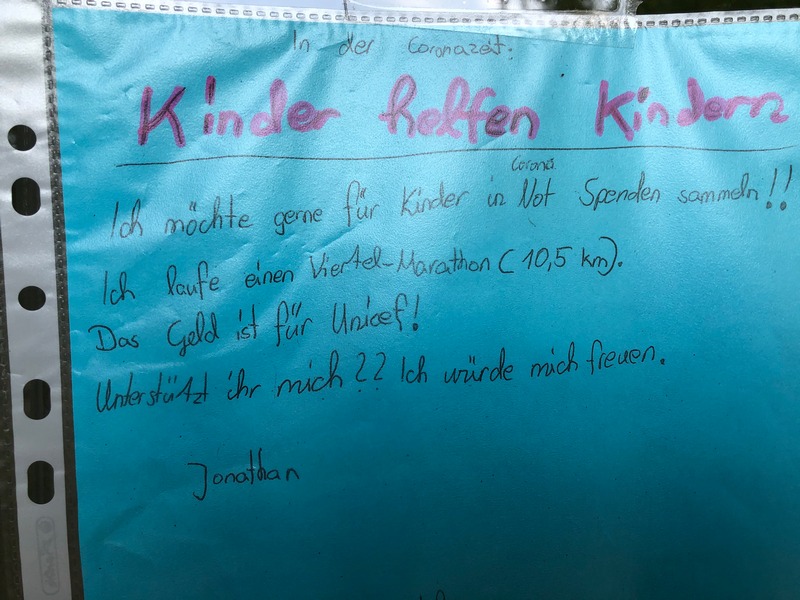 In der Coronazeit:
Kinder helfen Kindern
Corona
Ich möchte gerne für Kinder in Not Spenden sammeln!!
Ich laufe einen Viertel-Marathon (10,5 km).
Das Geld ist für Unicef!
Unterstützt ihr mich?? Ich würde mich freuen.
Jonathan